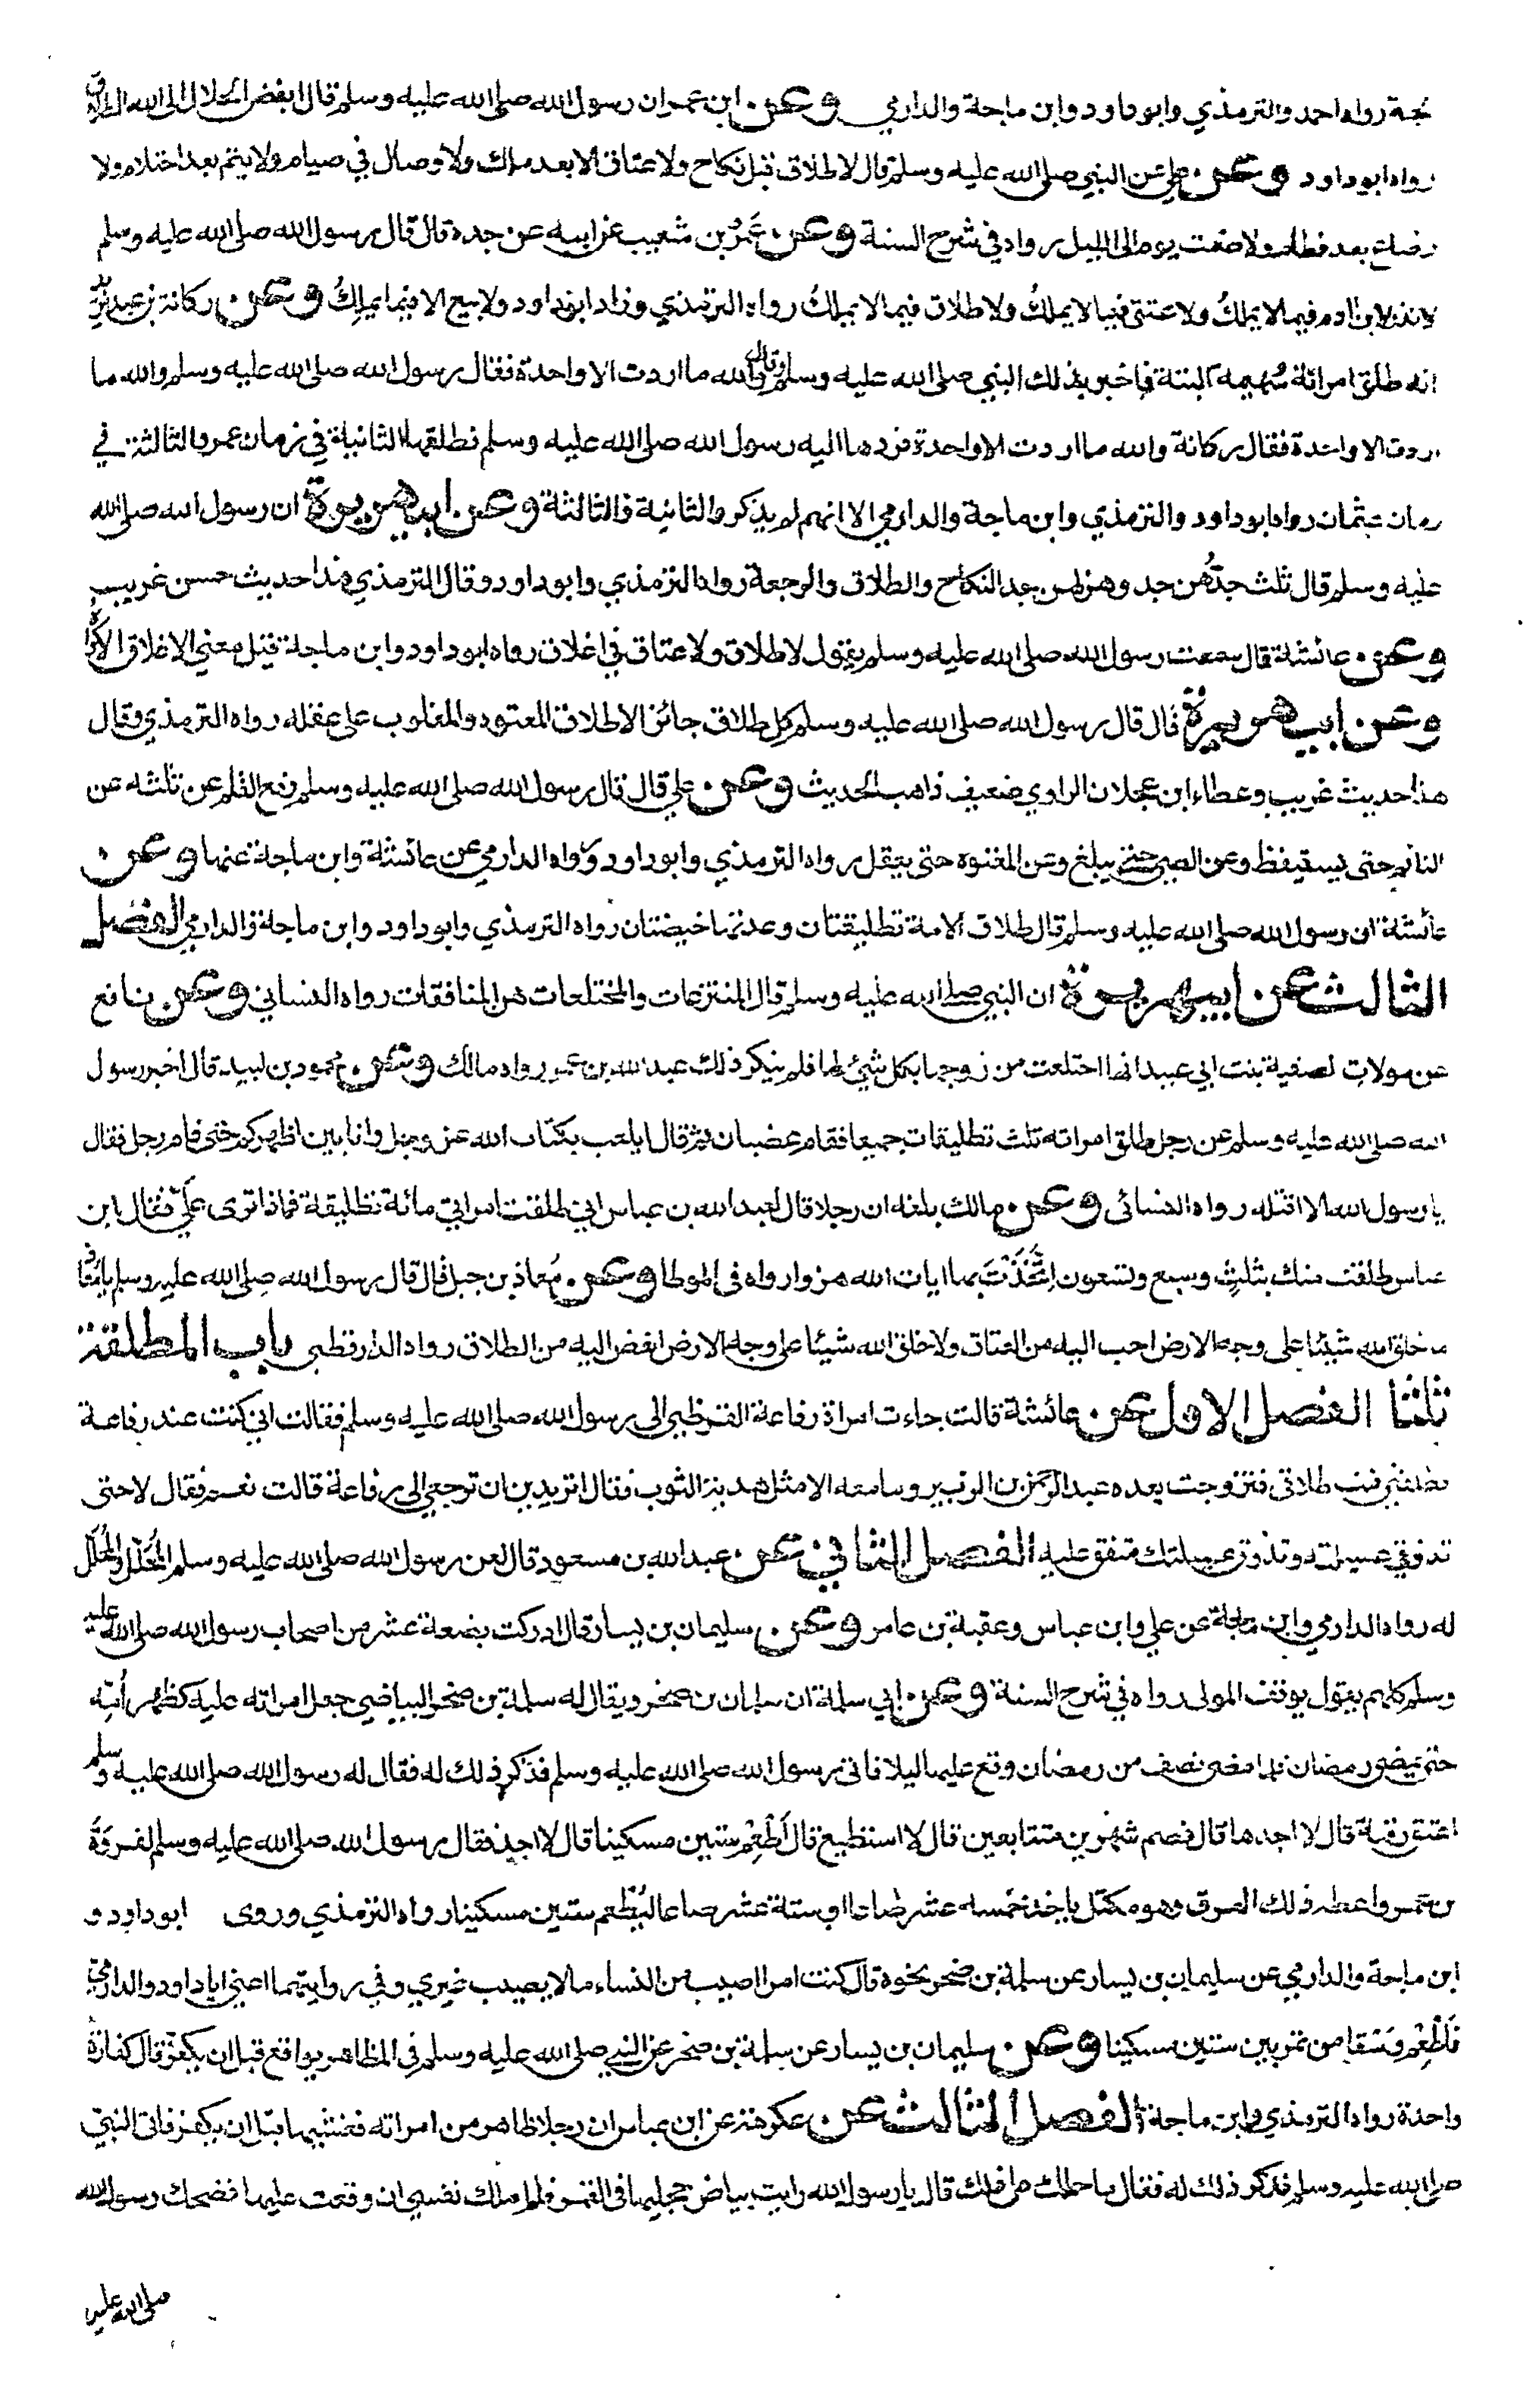 لجنة رواه احمد والترمذي وابو داود وابن ماجة والدارمي وعن ابن عمر ان رسول الله صلى الله عليه وسلم قال ابغض الحلال الى الله الطلاق
رواه ابو داود وعن علي عن النبي صلى الله عليه وسلم قال لا طلاق قبل نكاح ولا عتاق الا بعد ملك ولا وصال في صيام ولا يتم بعد احتلام ولا
رضاع بعد فطام ولا صمت يوم الى الليل رواه في شرح السنة وعن عمر بن شعيب عن ابيه عن جده قال قال رسول الله صلى الله عليه وسلم
لا نذر لابن ادم فيما لا يملك ولا عتق فيما لا يملك ولا طلاق فيما لا يملك رواه الترمذي وزاد ابو داود ولا بيع الا فيما يملك وعن ركانة بن عبد يزيد
انه طلق امراته سهيمة البتة فاخبر بذلك النبي صلى الله عليه وسلم وقال والله ما اردت الا واحدة فقال رسول الله صلى الله عليه وسلم والله ما
اردت الا واحدة فقال ركانة والله ما اردت الا واحدة فردها اليه رسول الله صلى الله عليه وسلم فطلقها الثانية في زمان عمر والثالثة في
زمان عثمان رواه ابو داود والترمذي وابن ماجة والدارمي الا انهم لم يذكروا الثانية والثالثة وعن ابي هريرة ان رسول الله صلى الله
عليه وسلم قال ثلث جدهن جد وهزلهن جد النكاح والطلاق والرجعة رواه الترمذي وابو داود وقال الترمذي هذا حديث حسن غريب
وعن عائشة قال سمعت رسول الله صلى الله عليه وسلم يقول لا طلاق ولا عتاق في اغلاق رواه ابو داود وابن ماجة قيل معنى الاغلاق الاكراه
وعن ابي هريرة قال قال رسول الله صلى الله عليه وسلم كل طلاق جائز الا طلاق المعتوه والمغلوب على عقله رواه الترمذي وقال
هذا حديث غريب وعطاء ابن عجلان الراوي ضعيف ذاهب الحديث وعن علي قال قال رسول الله صلى الله عليه وسلم رفع القلم عن ثلثه عن
النائم حتى يستيقظ وعن الصبي حتى يبلغ وعن المعتوه حتى يعقل رواه الترمذي وابو داود ورواه الدارمي عن عائشة وابن ماجة عنها وعن
عائشة ان رسول الله صلى الله عليه وسلم قال طلاق الامة تطليقتان وعدتها حيضتان رواه الترمذي وابو داود وابن ماجة والدارمي الفصل
الثالث عن ابي هريرة ان النبي صلى الله عليه وسلم قال المنتزعات والمختلعات هن المنافقات رواه النسائي وعن نافع
عن مولاة لصفية بنت ابي عبيد انها اختلعت من زوجها بكل شيئ لها فلم ينكر ذلك عبد الله بن عمر رواه مالك وعن محمود بن لبيد قال اخبر رسول
الله صلى الله عليه وسلم عن رجل طلق امراته ثلث تطليقات جميعا فقام غضبان ثم قال ايلعب بكتاب الله عز وجل وانا بين اظهركم حتى قام رجل فقال
يا رسول الله الا اقتله رواه النسائى وعن مالك بلغه ان رجلا قال لعبد الله بن عباس اني طلقت امراتي مائة تطليقة فماذا ترى علي فقال ابن
عباس طلقت منك بثلث وسبع وتسعون اتخذت بها ايات الله هزوا رواه فى الموطا وعن معاذ بن جبل قال قال رسول الله صلى الله عليه وسلم يا معاذ
ما خلق الله شيئا على وجه الارض احب اليه من العتاق ولا خلق الله شيئا على وجه الارض ابغض اليه من الطلاق رواه الدارقطني باب المطلقة
ثلثا الفصل الاول عن عائشة قالت جاءت امراة رفاعة القرظي الى رسول الله صلى الله عليه وسلم فقالت اني كنت عند رفاعة
فطلقني فبت طلاقي فتزوجت بعده عبد الرحمن بن الزبير وما معه الا مثل هدبة الثوب فقال اتريدين ان ترجعي الى رفاعة قالت نعم فقال لا حتى
تذوقي عسيلته ويذوق عسيلتك متفق عليه الفصل الثاني عن عبد الله بن مسعود قال لعن رسول الله صلى الله عليه وسلم المحلل والمحلل
له رواه الدارمي وابن ماجة عن علي وابن عباس وعقبة بن عامر وعن سليمان بن يسار قال ادركت بضعة عشر من اصحاب رسول الله صلى الله عليه
وسلم كلهم يقول يوقف المولى رواه في شرح السنة وعن ابي سلمة ان سلمان بن صخر ويقال له سلمة بن صخر البياضي جعل امراته عليه كظهر أمّه
حتى يمضي رمضان فلما مضى نصف من رمضان وقع عليها ليلا فاتى رسول الله صلى الله عليه وسلم فذكر ذلك له فقال له رسول الله صلى الله عليه وسلم
اعتق رقبة قال لا اجدها قال فصم شهرين متتابعين قال لا استطيع قال أطعم ستين مسكينا قال لا اجد فقال رسول الله صلى الله عليه وسلم لفروة
بن عمرو اعطه ذلك العرق وهو مكتل ياخذ خمسه عشر صاعا او ستة عشر صاعا ليطعم ستين مسكينا رواه الترمذي وروى ابو داود و
ابن ماجة والدارمي عن سليمان بن يسار عن سلمة بن صخر نحوه قال كنت امرا اصيب من النساء ما لا يصيب غيري وفي روايتهما اعني ابا داود والدارمي
فأطعم وسقا من تمر بين ستين مسكينا وعن سليمان بن يسار عن سلمة بن صخر عن النبي صلى الله عليه وسلم في المظاهر يواقع قبل ان يكفر قال كفارة
واحدة رواه الترمذي وابن ماجة الفصل الثالث عن عكرمة عن ابن عباس ان رجلا ظاهر من امراته فغشيها قبل ان يكفر فاتى النبي
صلى الله عليه وسلم فذكر ذلك له فقال ما حملك على ذلك قال يا رسول الله رايت بياض حجليها فى القمر فلم املك نفسي ان وقعت عليها فضحك رسول الله
صلى الله عليه